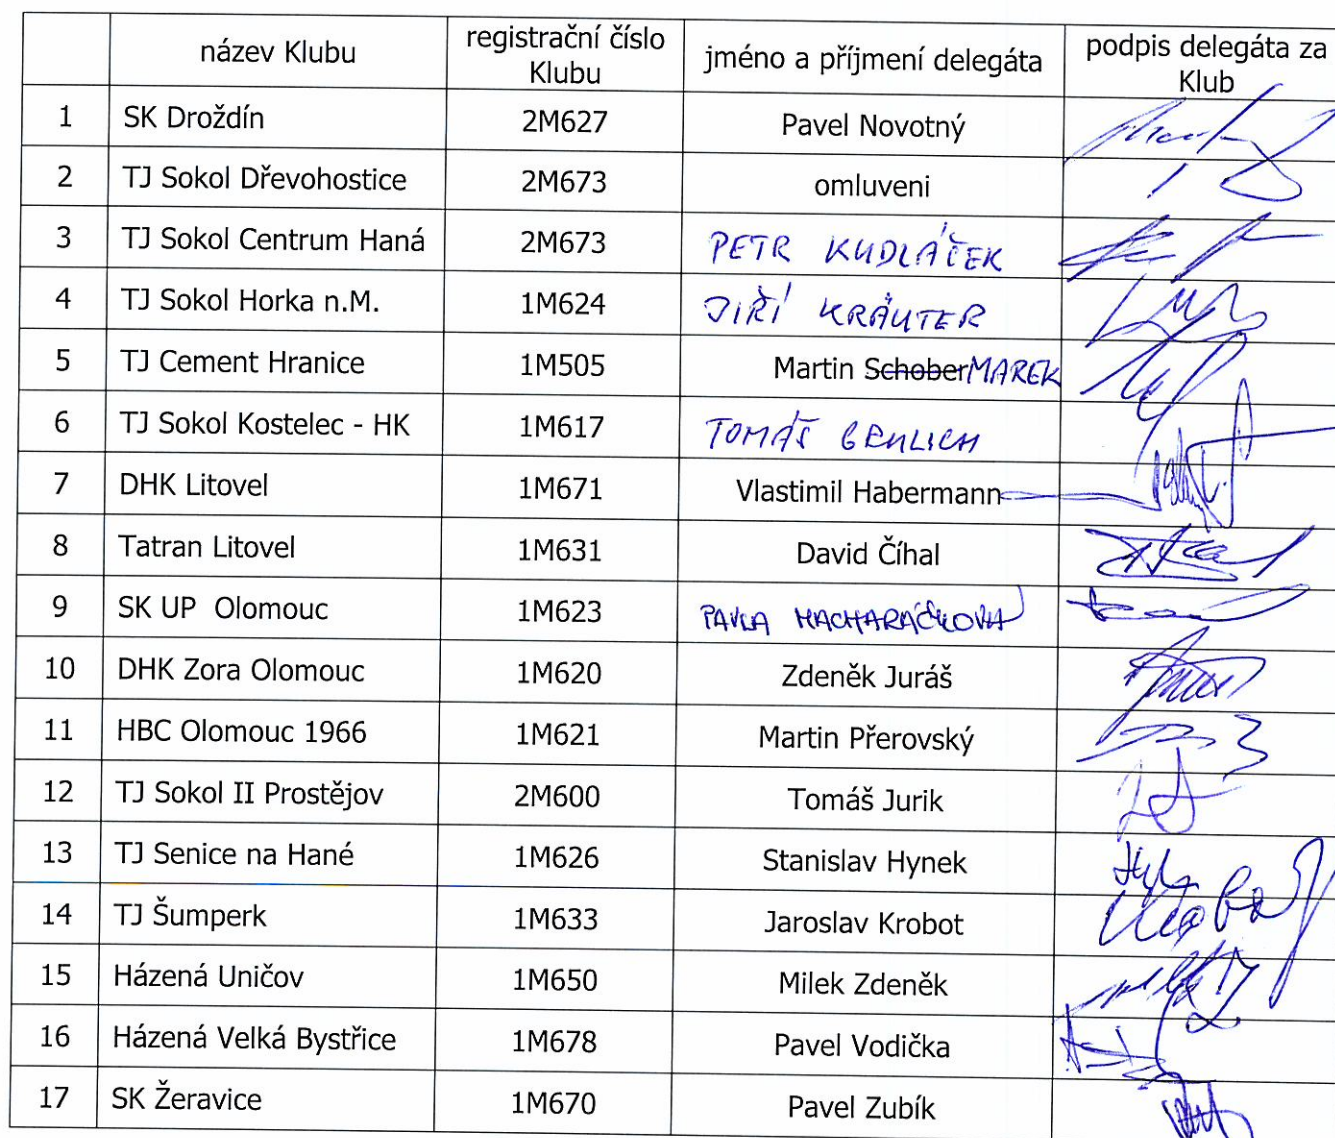 název Klubu registrační číslo Klubu jméno a příjmení delegáta podpis delegáta za Klub
1 SK Droždín 2M627 Pavel Novotný
2 TJ Sokol Dřevohostice 2M673 omluveni
3 TJ Sokol Centrum Haná 2M673 PETR KUDLÁČEK
4 TJ Sokol Horka n.M. 1M624 JIŘÍ KRÄUTER
5 TJ Cement Hranice 1M505 Martin Schober MAREK
6 TJ Sokol Kostelec - HK 1M617 TOMÁŠ
7 DHK Litovel 1M671 Vlastimil Habermann
8 Tatran Litovel 1M631 David Číhal
9 SK UP Olomouc 1M623 PAVLA MACHARÁČKOVÁ
10 DHK Zora Olomouc 1M620 Zdeněk Juráš
11 HBC Olomouc 1966 1M621 Martin Přerovský
12 TJ Sokol II Prostějov 2M600 Tomáš Jurik
13 TJ Senice na Hané 1M626 Stanislav Hynek
14 TJ Šumperk 1M633 Jaroslav Krobot
15 Házená Uničov 1M650 Milek Zdeněk
16 Házená Velká Bystřice 1M678 Pavel Vodička
17 SK Žeravice 1M670 Pavel Zubík